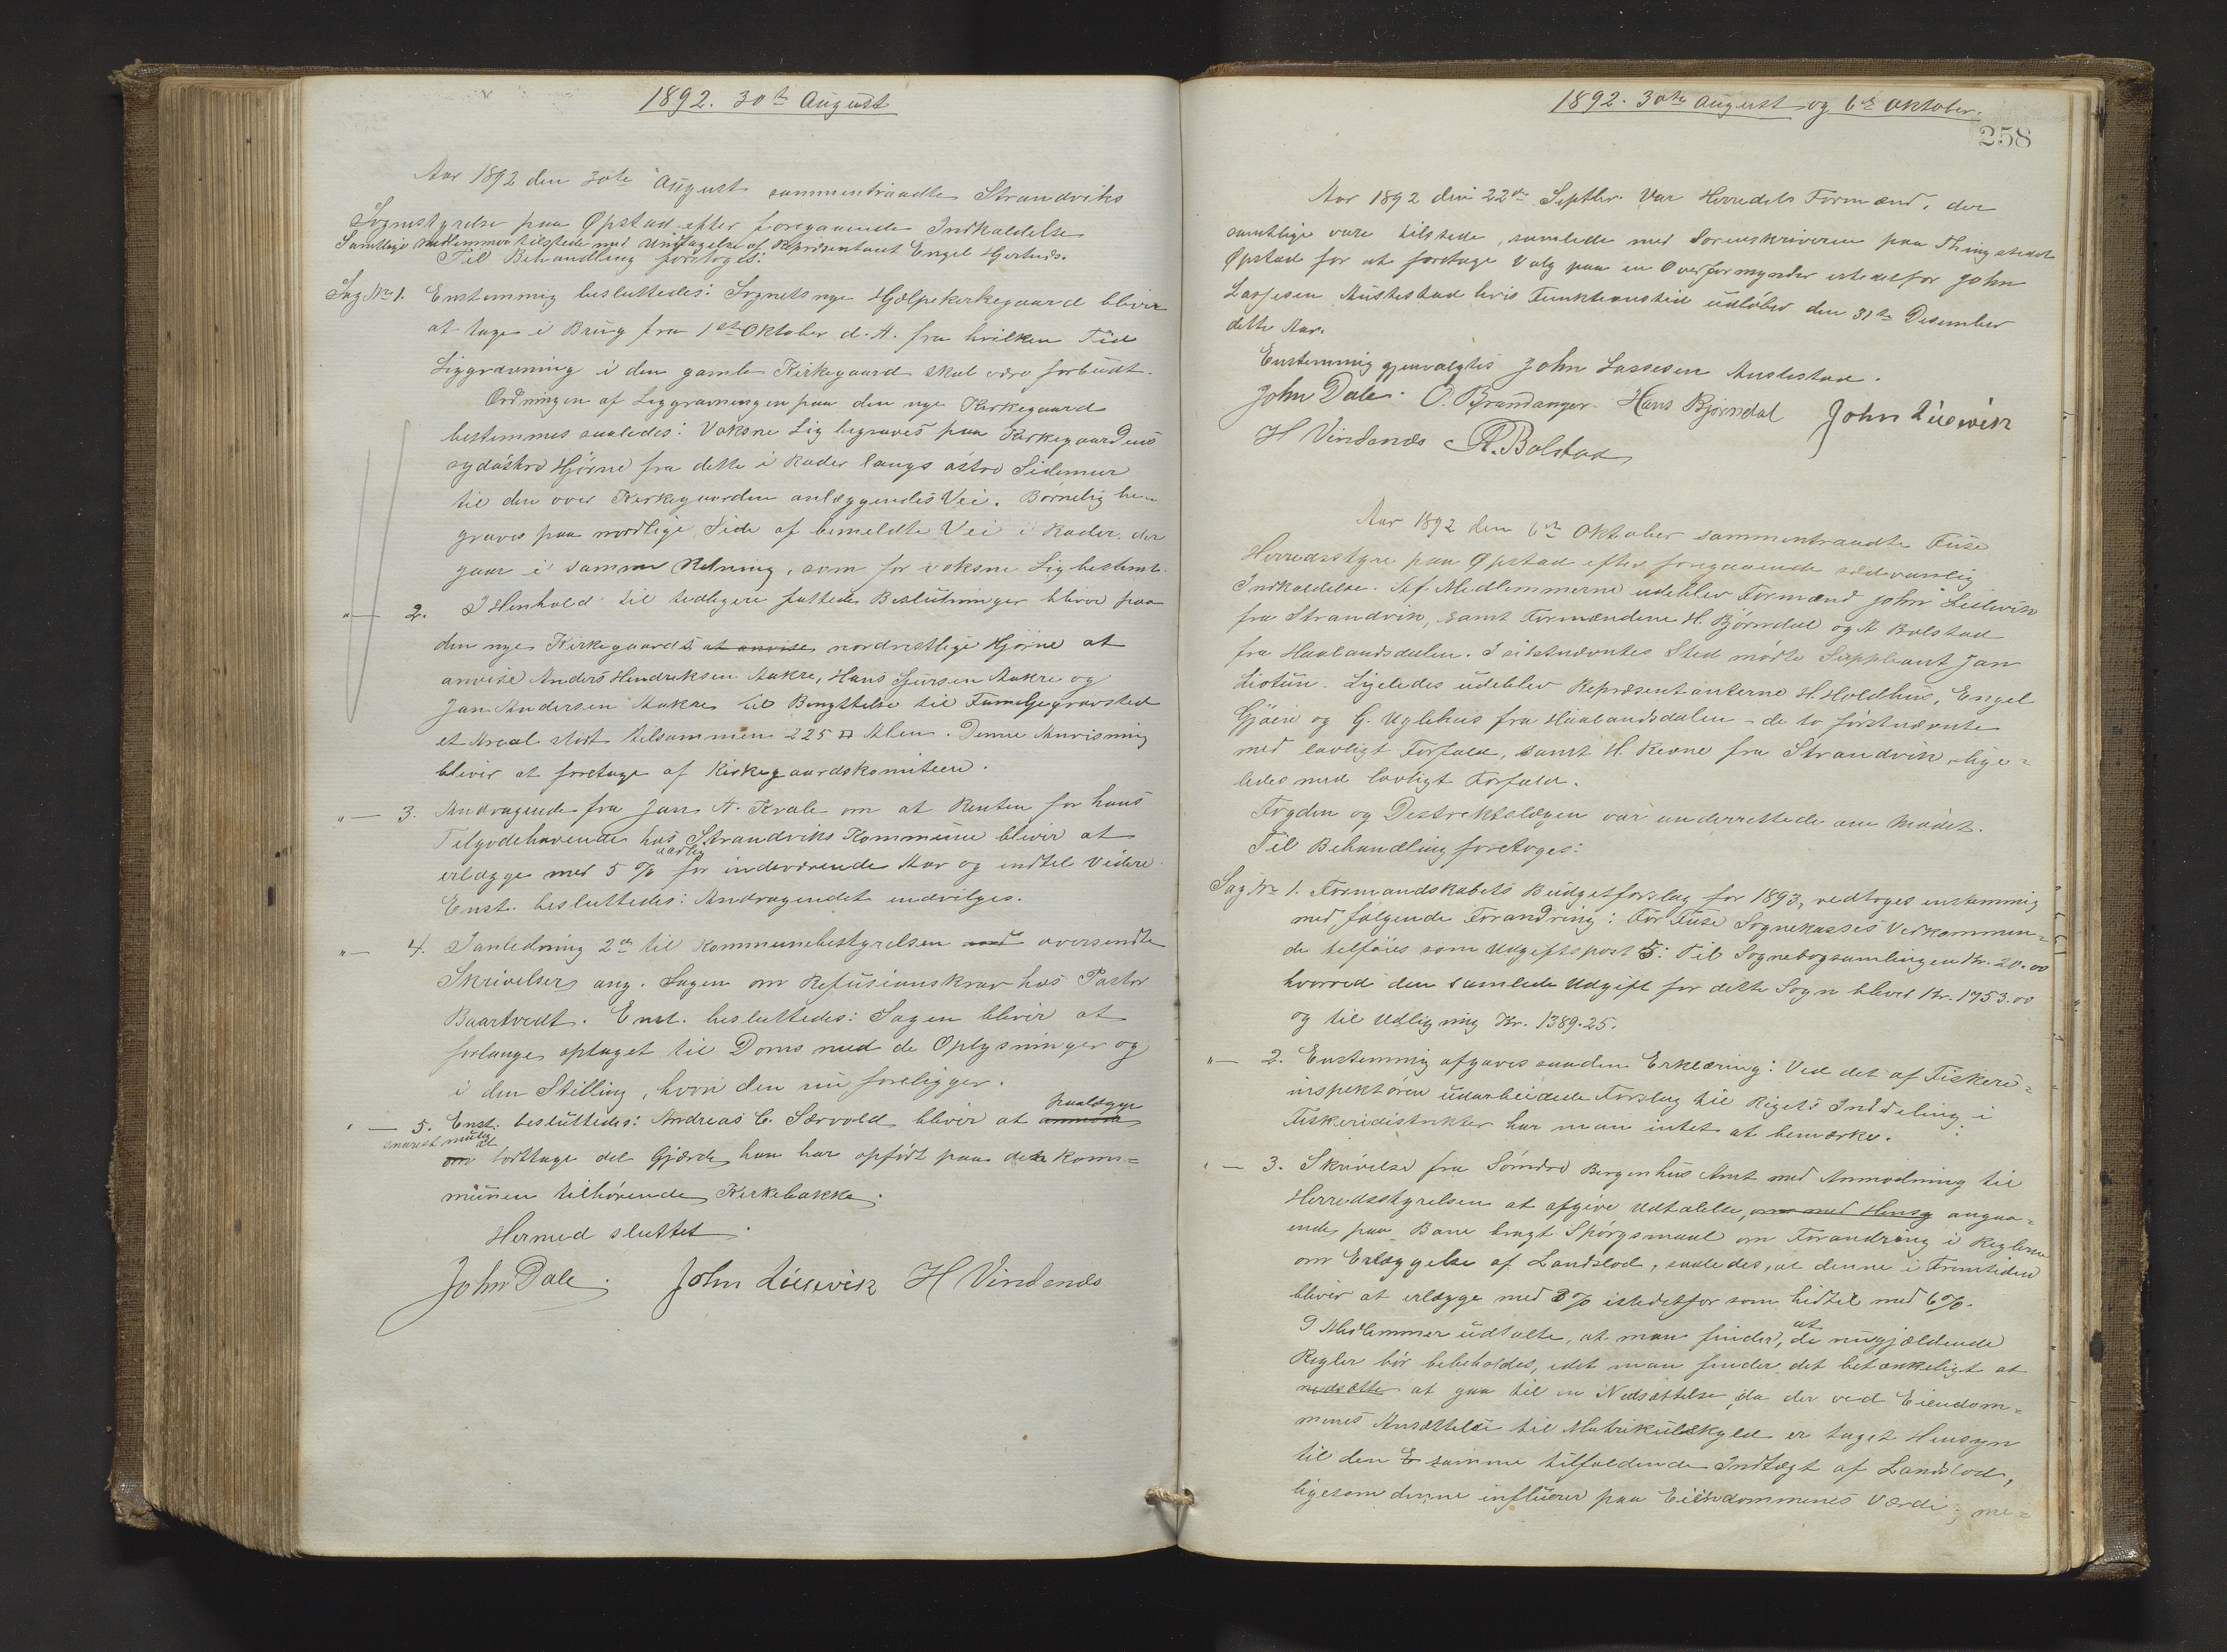 1892. 30te August
Aar 1892 den 30te August sammentraadte Strandviks
Sognestyrelse paa Øpstad efter foregaaende Indkaldelse
Samtlige Medlemmer tilstede med Undtagelse af Repræsentant Engel Gjertruds.
Til Behandling foretoges:
Sag No 1. Enstemmig besluttedes: Sognets nye Hjælpekirkegaard bliver
at tage i Brug fra 1ste Oktober d. A. fra hvilken Tid
Liggravning i den gamle Kirkegaard skal være forbudt.
Ordningen af Liggravningen paa den nye Kirkegaard
bestemmes saaledes: Voksne Lig begraves paa Kirkegaardens
sydöstre Hjörne fra dette i Rader langs östre Sidemur
til den over Kirkegaarden anlæggendes Vei. Børnelig be-
graves paa nordlige Side af bemeldte Vei i Rader, der
gaar i samme Retning, som for voksne Lig bestemt.
"— 2. I Henhold til tidligere fattede Beslutninger bliver paa
den nye Kirkegaards at anvise nordvestlige Hjörne at
anvise Anders Hendriksen Aakre, Hans Sjursen Aakre og
Jan Andersen Aakre til Benyttelse til Familjegravsted
et Areal stort tilsammen 225 □ Alen. Denne Anvisning
bliver at foretage af Kirkegaardskomiteen.
"— 3. Andragende fra Jan A. Kvale om at Renten for hans
Tilgodehavende hos Strandviks Kommune bliver at
erlægge med 5 % aarlig for indeværende Aar og indtil videre.
Enst. besluttedes: Andragendet indvilges.
"— 4. I anledning 2de til Kommunebestyrelsen oversendte
Skrivelser ang. Sagen om Refusionskrav hos Pastor
Baartvedt. Enst. besluttedes: Sagen bliver at
forlange optaget til Doms med de Oplysninger og
i den Stilling, hvori den nu foreligger.
"— 5. Enst. besluttedes: Andreas C. Særvold bliver at anmode paalægge
snarest mulig at
om borttage det Gjærde han har opført paa den Kom=
munen tilhørende Kirkebakke.
Hermed sluttet.
John Dale. John Liisevik H Vindenes
1892. 30te August og 6te Oktober.
258
Aar 1892 den 22de Septbr. Var Herredets Formænd, der
samtlige vare tilstede, samlede med Sorenskriveren paa Thingstedet
Øpstad for at foretage Valg paa en Overformynder istedetfor John
Lassesen Austestad hvis Funktionstid udløber den 31te Desember
dette Aar.
Enstemmig gjenvalgtes John Lassesen Austestad.
John Dale. O. Brandanger. Hans Bjørndal John Liisevik
H Vindenes A. Bolstad
Aar 1892 den 6te Oktober sammentraadte Fuse
Herredsstyre paa Øpstad efter foregaaende sædvanlig
Indkaldelse. Af Medlemmerne udeblev Formand John Liisevik
fra Strandvik, samt Formændene H. Bjørndal og A Bolstad
fra Haalandsdalen. I sidstnævntes Sted mødte Suppleant Jan
Liotun. Ligeledes udeblev Repræsentanterne H. Holdhus, Engel
Gjöen og G. Uglehus fra Haalandsdalen – de to førstnævnte
med lovligt Forfald, samt H. Revne fra Strandvik, lige=
ledes med lovligt Forfald.
Fogden og Destriktslægen var underrettede om Mødet.
Til Behandling foretoges:
Sag No 1. Formandskabets Budgetforslag for 1893, vedtoges enstemmig
med følgende Forandring: For Fuse Sognekasses Vedkommen=
de tilføies som Udgiftspost 5: Til Sognebogsamlingen Kr. 20.00
hvorved den samlede Udgift for dette Sogn bliver Kr. 1753.00
og til Udligning Kr. 1389.25.
"— 2. Enstemmig afgaves saadan Erklæring: Ved det af Fiskeri=
inspektøren udarbeidede Forslag til Rigets Inddeling i
Fiskeridistrikter har man intet at bemærke.
"— 3. Skrivelse fra Søndre Bergenhus Amt med Anmodning til
Herredsstyrelsen at afgive Udtalelse, om med Hensy angaa=
ende paa Bane bragt Spørgsmaal om Forandring i Reglerne
om Erlæggelse af Landslod, saaledes, at denne i Fremtiden
bliver at erlægge med 3 % istedetfor som hidtil med 6 %.
9 Medlemmer udtalte, at man finder, at de nugjældende
Regler bör bibeholdes, idet man finder det betænkeligt at
nedsætte at gaa til en Nedsættelse, da der ved Eiendom=
menes Ansættelse til Matrikulskyld er taget Hensyn
til den E samme tilfaldende Indtægt af Landslod,
ligesom denne influerer paa Eiendommenes Værdi; me=